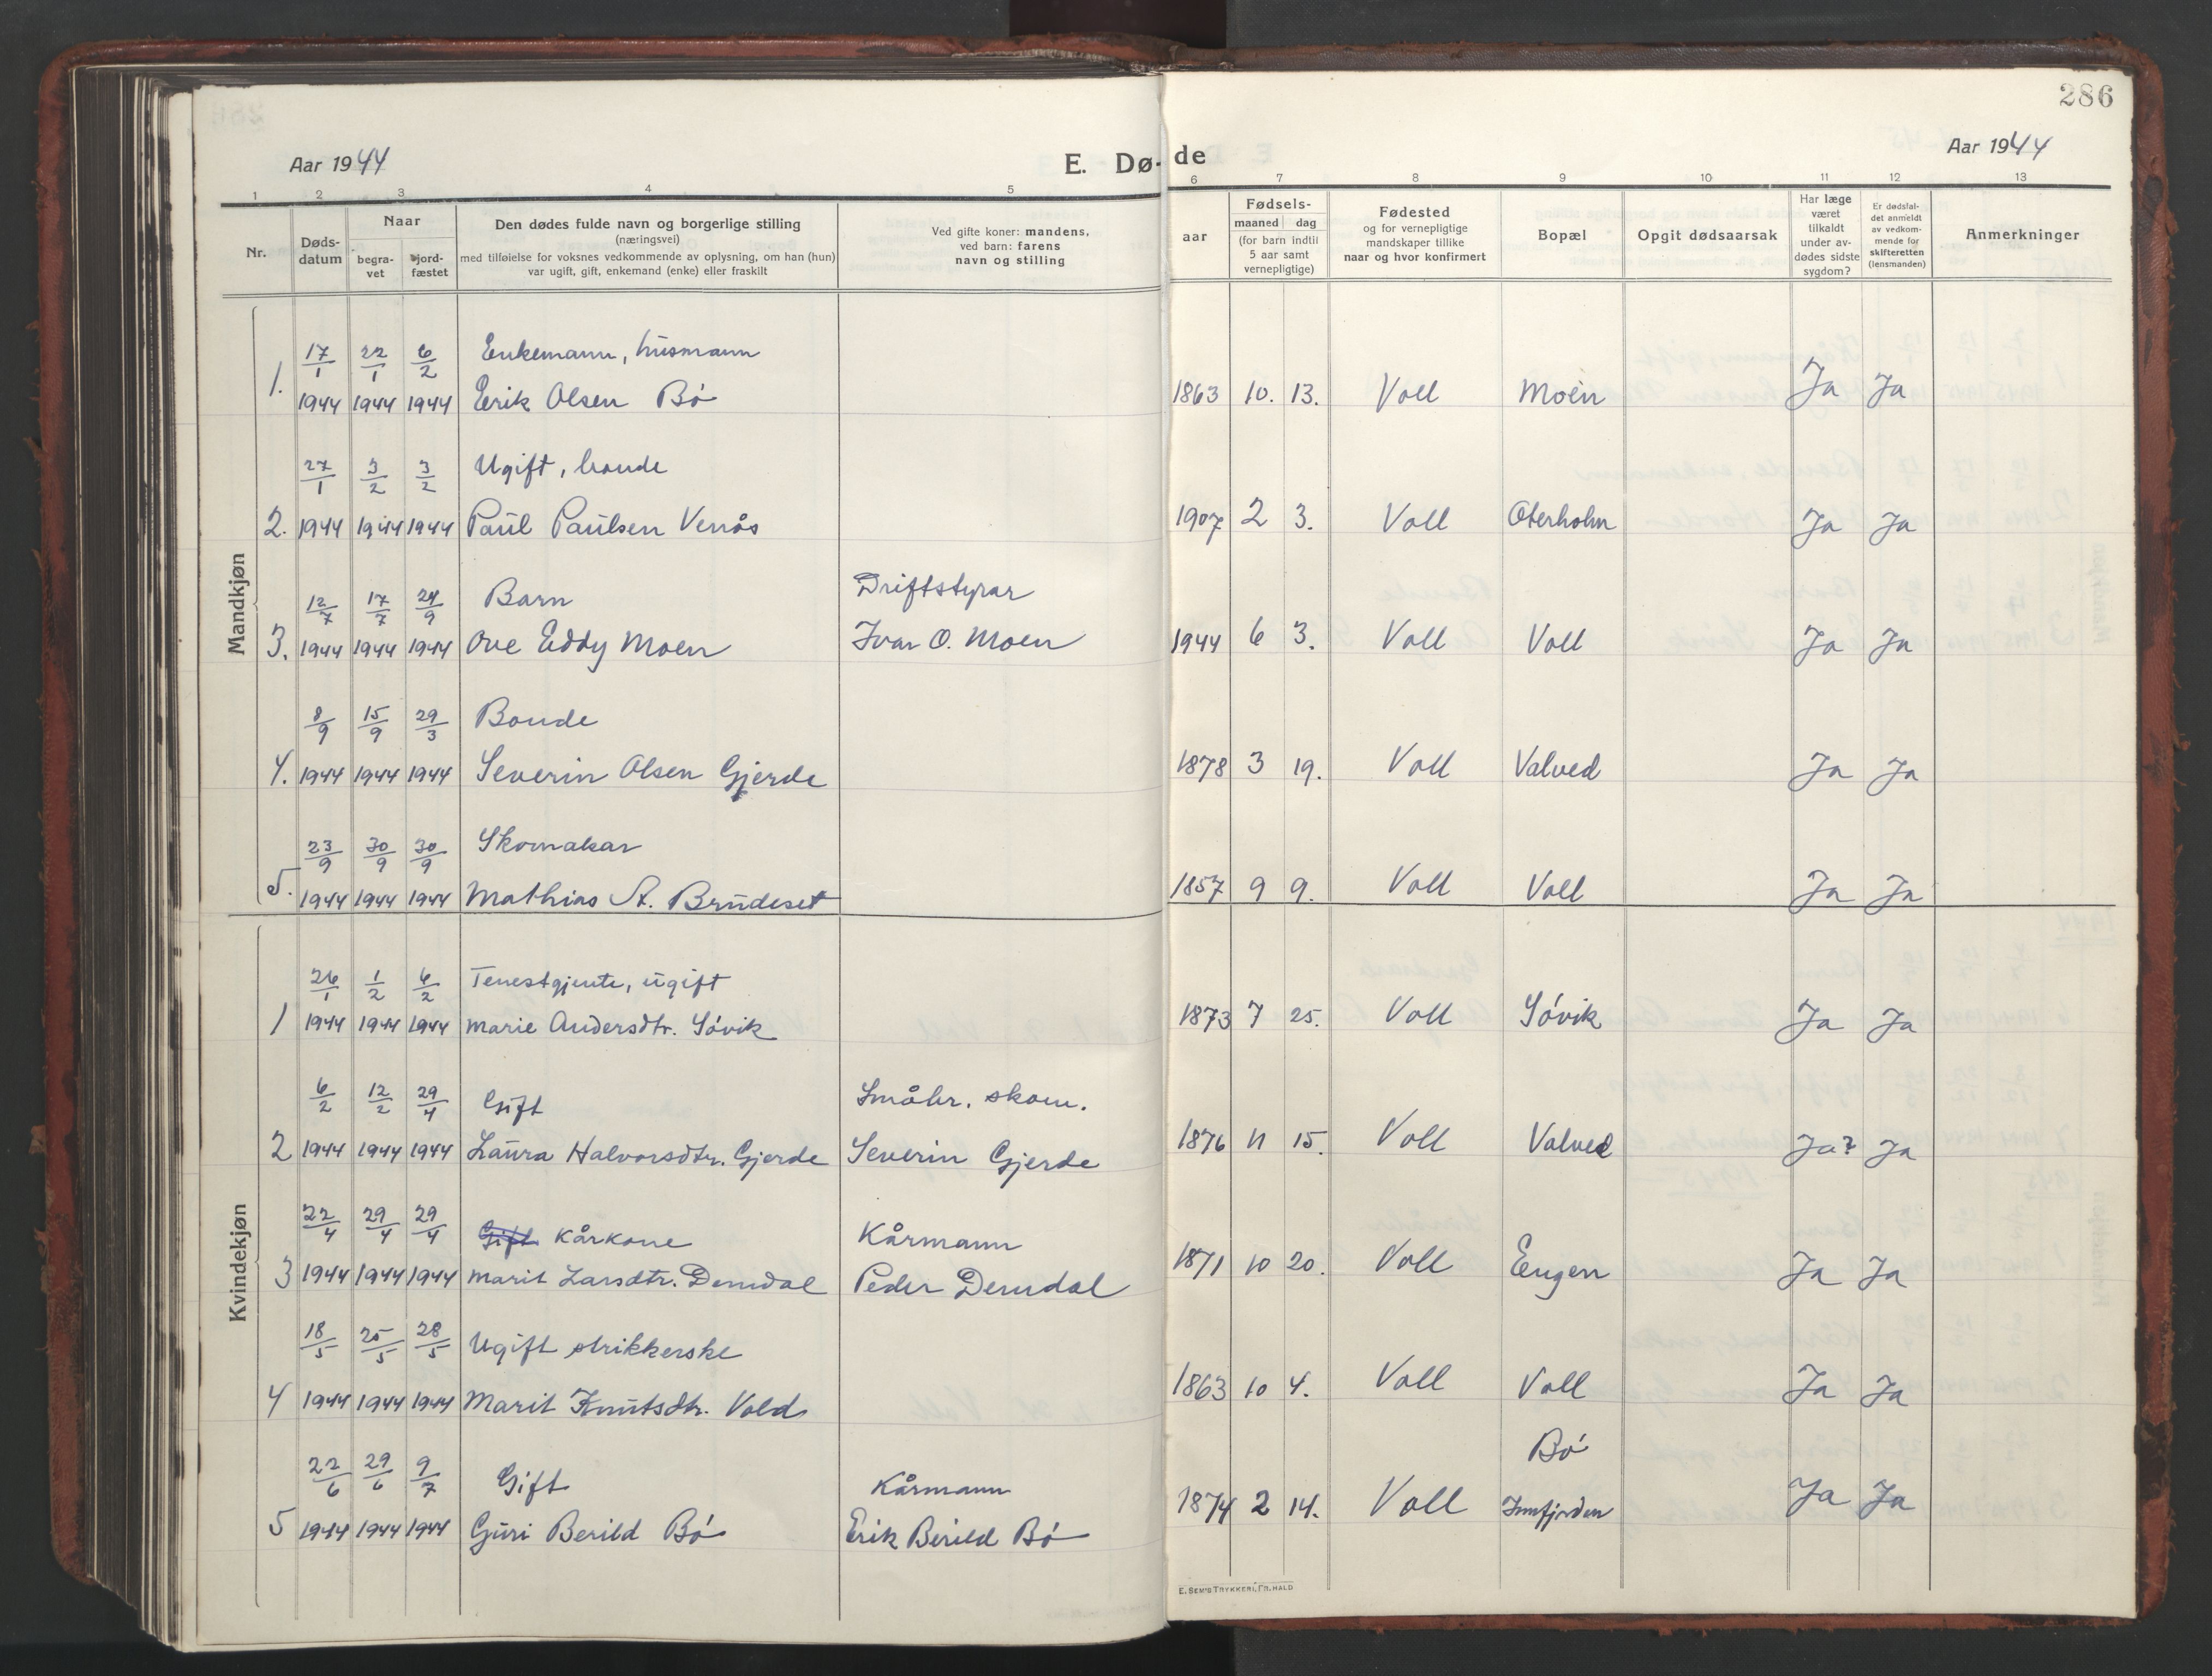 286
Aar 1944
E. Dø-de
Aar 1944
1 2 3 4 5 6 7 8 9 10 11 12 13
Nr.
Døds-
datum
Naar
begra-
vet
jord-
fæstet
Den dødes fulde navn og borgerlige stilling
(næringsvei)
med tilføielse for voksnes vedkommende av oplysning, om han (hun)
var ugift, gift, enkemand (enke) eller fraskilt
Ved gifte koner: mandens,
ved barn: farens
navn og stilling
Fødsels-
aar
maaned dag
(for barn indtil
5 aar samt
vernepligtige)
Fødested
og for vernepligtige
mandskaper tillike
naar og hvor konfirmert
Bopæl
Opgit dødsaarsak
Har læge
været
tilkaldt
under av-
dødes sidste
sygdom?
Er dødsfal-
det anmeldt
av vedkom-
mende for
skifteretten
(lensmanden)
Anmerkninger
Mandkjøn
17/1 22/1 6/2 Enkemann, husmann
1. 1944 1944 1944 Erik Olsen Bø 1863 10. 13. Voll Moen Ja Ja
27/1 3/2 3/2 Ugift, bonde
2. 1944 1944 1944 Paul Paulsen Venås 1907 2 3. Voll Oterholm Ja Ja
12/7 17/7 24/9 Barn Driftstyrar
3. 1944 1944 1944 Ove Eddy Moen Ivar O. Moen 1944 6 3. Voll Voll Ja Ja
8/9 15/9 29/3 Bonde
4. 1944 1944 1944 Severin Olsen Gjerde 1878 3 19. Voll Valved Ja Ja
23/9 30/9 30/9 Skomakar
5. 1944 1944 1944 Mathias A. Brudeset 1857 9 9. Voll Voll Ja Ja
Kvindekjøn
26/1 1/2 6/2 Tenestgjente, ugift
1 1944 1944 1944 Marie Andersdtr. Søvik 1873 7 25. Voll Søvik Ja Ja
6/2 12/2 29/4 Gift Småbr. skom.
2 1944 1944 1944 Laura Halvorsdtr. Gjerde Severin Gjerde 1876 11 15. Voll Valved Ja? Ja
22/4 29/4 29/4 Gift Kårkone Kårmann
3 1944 1944 1944 Marit Larsdtr. Demdal Peder Demdal 1871 10 20. Voll Engen Ja Ja
18/5 25/5 28/5 Ugift strikkerske
4 1944 1944 1944 Marit Knutsdtr. Vold 1863 10 4. Voll Voll Ja Ja
22/6 29/6 9/7 Gift Kårmann Bø
5 1944 1944 1944 Guri Berild Bø Erik Berild Bø 1874 2 14. Voll Innfjorden Ja Ja
E. SEM'S TRYKKERI, FR. HALD